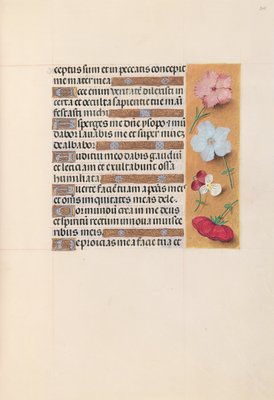 ceptus sum et in peccatis concepit
me mater mea
Ecce enim veritatē dilexisti in
certa et occulta sapientie tue maī
festasti michi
Asperges me dn̄e ysopo ⁊ mū
dabor lavabis me et super nivez
dealbabor
Auditui meo dabis gaudiū
et leticiam et exultabunt ossa
humiliata
Averte faciē tuam a pctīs meis
et om̄s iniquitates meas dele
Cor mundū crea in me deus
et spiritū rectum innova in visce
ribus meis
Ne proicias me a facie tua et